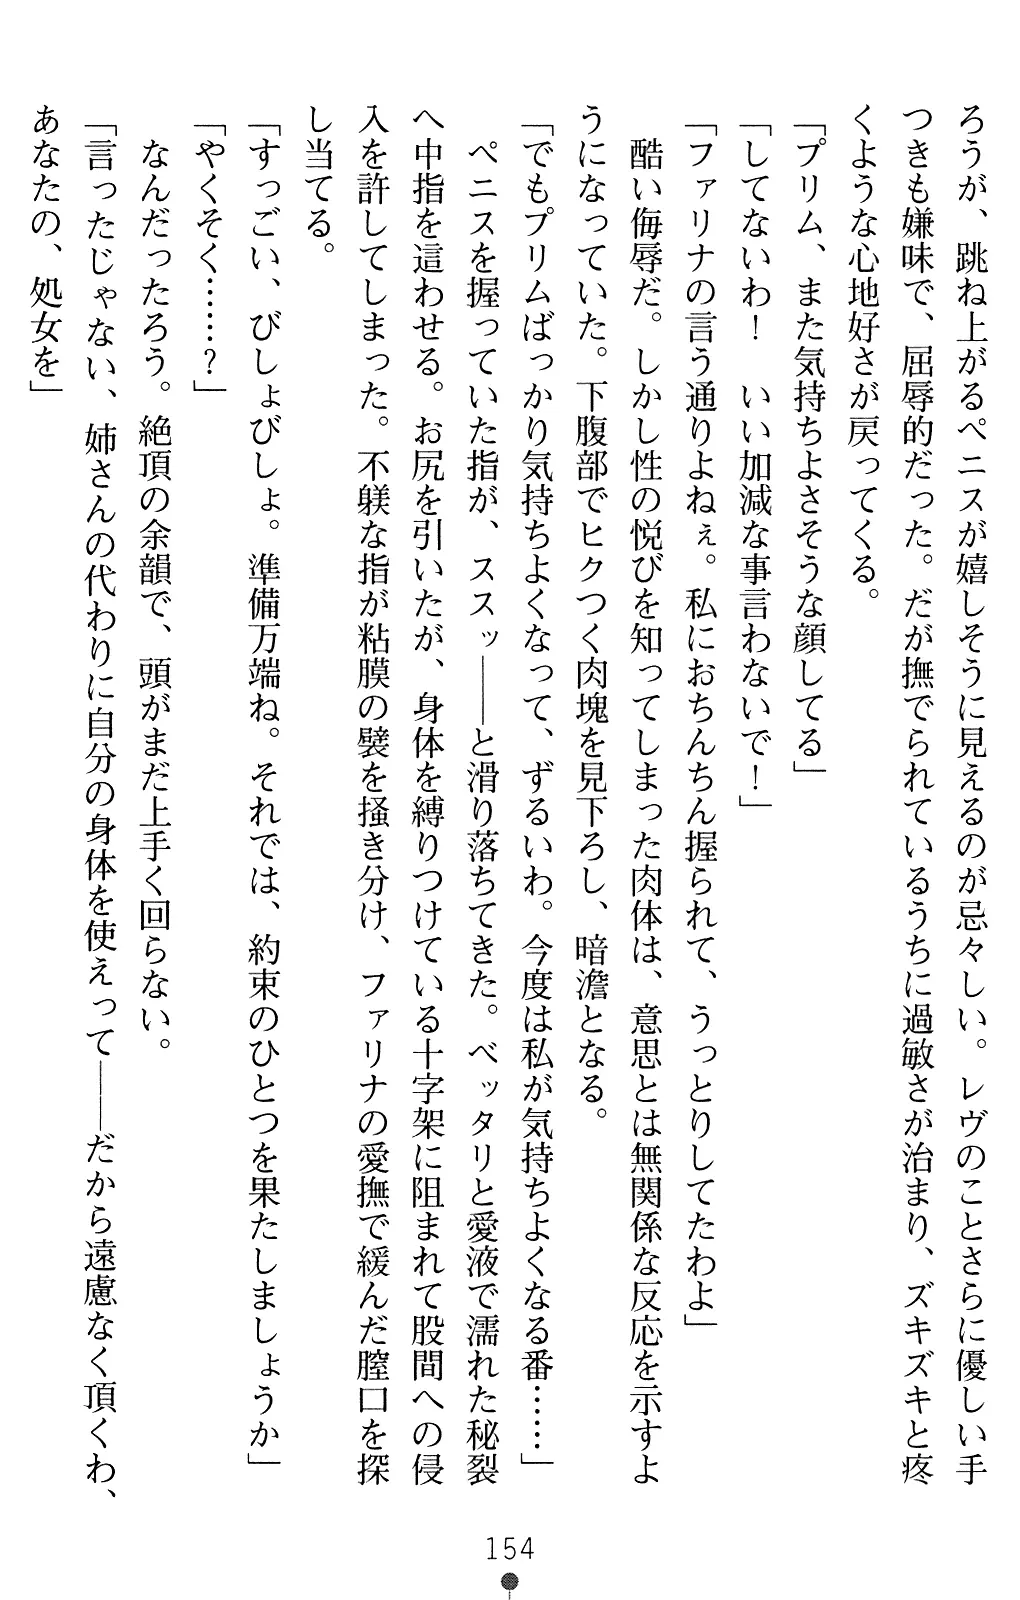 ろうが、跳ね上がるペニスが嬉しそうに見えるのが忌々しい。レヴのことさらに優しい手
つきも嫌味で、屈辱的だった。だが撫でられているうちに過敏さが治まり、ズキズキと疼
くような心地好さが戻ってくる。
「プリム、また気持ちよさそうな顔してる」
「してないわ！　いい加減な事言わないで！」
「ファリナの言う通りよねぇ。私におちんちん握られて、うっとりしてたわよ」
　酷い侮辱だ。しかし性の悦びを知ってしまった肉体は、意思とは無関係な反応を示すよ
うになっていた。下腹部でヒクつく肉塊を見下ろし、暗澹となる。
「でもプリムばっかり気持ちよくなって、ずるいわ。今度は私が気持ちよくなる番……」
　ペニスを握っていた指が、ススッ――と滑り落ちてきた。ベッタリと愛液で濡れた秘裂
へ中指を這わせる。お尻を引いたが、身体を縛りつけている十字架に阻まれて股間への侵
入を許してしまった。不躾な指が粘膜の襞を掻き分け、ファリナの愛撫で緩んだ膣口を探
し当てる。
「すっごい、びしょびしょ。準備万端ね。それでは、約束のひとつを果たしましょうか」
「やくそく……？」
　なんだったろう。絶頂の余韻で、頭がまだ上手く回らない。
「言ったじゃない、姉さんの代わりに自分の身体を使えって――だから遠慮なく頂くわ、
あなたの、処女を」
154